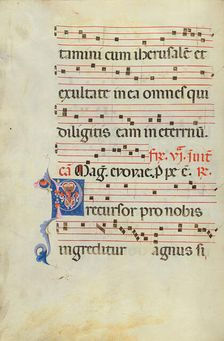 tamini cum iherusalẽ et
exultate in ea omnes qui
diligitis eam in eternũ.
Mag.
recursor pro nobis
ingreditur agnus si